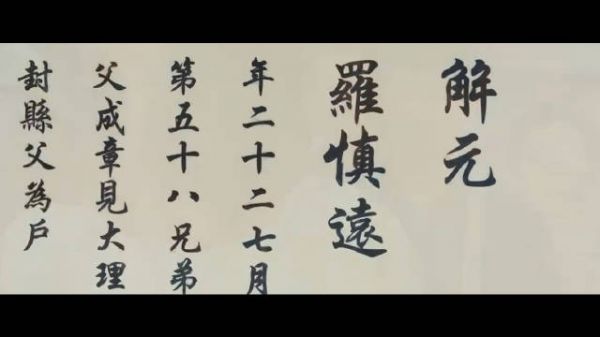 解元
羅慎遠
年二十二七月
第五十八兄弟
父成章見大理
封縣父為戶